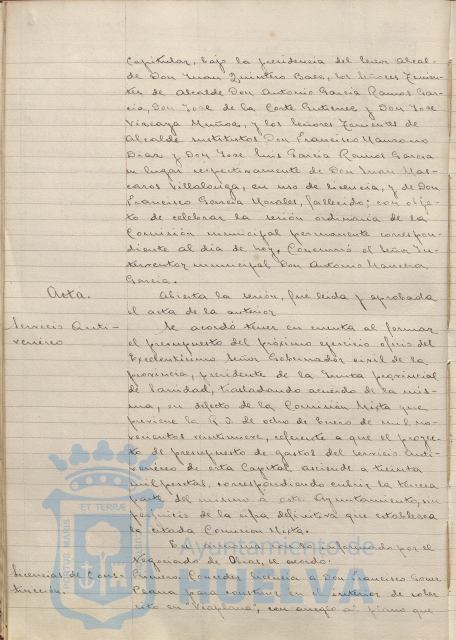 Capitular, bajo la presidencia del Señor Alcal-
de Don Juan Quintero Baez, los señores Tenien-
tes de Alcalde Don Antonio Garcia Ramos Gar-
cia, Don Jose de la Corte Gutierrez y Don Jose
Vizcaya Muñoz, y los Señores Tenientes de
Alcalde sustitutos Don Francisco
Diaz y Don Jose Luis Garcia Ramos Garcia
en lugar respectivamente de Don Juan Mas-
caros Villalonga, en uso de licencia, y de Don
Francisco Garcia Morales, fallecido; con obje-
to de celebrar la sesión ordinaria de la
Comisión municipal permanente correspon-
diente al dia de hoy. Concurrió el Señor In-
terventor municipal Don Antonio
Garcia.
Acta.
Abierta la sesión, fue leida y aprobada
el acta de la anterior.
Servicio Anti-
venéreo
Se acordó tener en cuenta al formar
el presupuesto del próximo ejercicio oficio del
Excelentisimo Señor Gobernador civil de la
provincia, presidente de la Junta provincial
de Sanidad, trasladando acuerdo de la mis-
ma, en defecto de la Comisión Mixta que
previene la R.O. de ocho de Enero de mil no-
vecientos veintinueve, referente a que el proyec-
to de presupuesto de gastos del servicio Anti-
venéreo de esta Capital asciende a treinta
mil pesetas, correspondiendo cubrir la tercera
parte del mismo a este Ayuntamiento, sin
perjuicio de la cifra definitiva que establezca
la citada Comisión Mixta.
En armonia con lo informado por el
Negociado de Obras, se acordó:
Licencias de Cons-
trucción.
Primero. Conceder licencia a Don Francisco Gomez
para construir en el interior de
sito en "Viaplana", con arreglo al plano que
ET TERRÆ
Ayuntamiento de
HUELVA